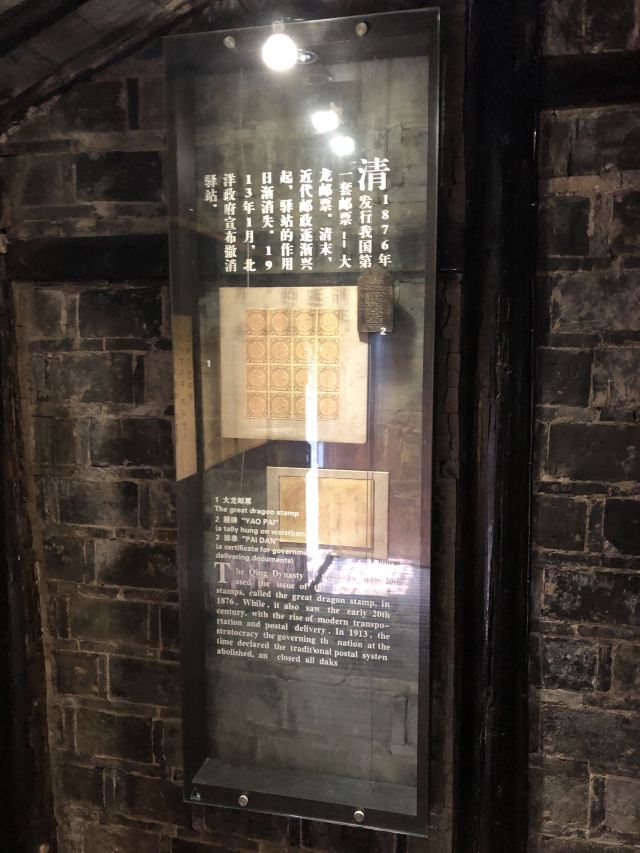 清
1876年
发行我国第
一套邮票——大
龙邮票。清末、
近代邮政逐渐兴
起，驿站的作用
日渐消失。19
13年1月，北
洋政府宣布撤消
驿站。
2
1
1 大龙邮票
The great dragon stamp
2 腰牌 "YAO PAI"
(a tally hung on waistband
3 排单 "PAI DAN"
(a certificate for governme
delivering documents)
The Qing Dynasty
used the issue of
stamps, called the great dragon stamp, in
1876. While, it also saw the early 20th
century, with the rise of modern transpo-
rtation and postal delivery. In 1913, the
stratocracy the governing th nation at the
time declared the traditional postal systen
abolished, an closed all daks